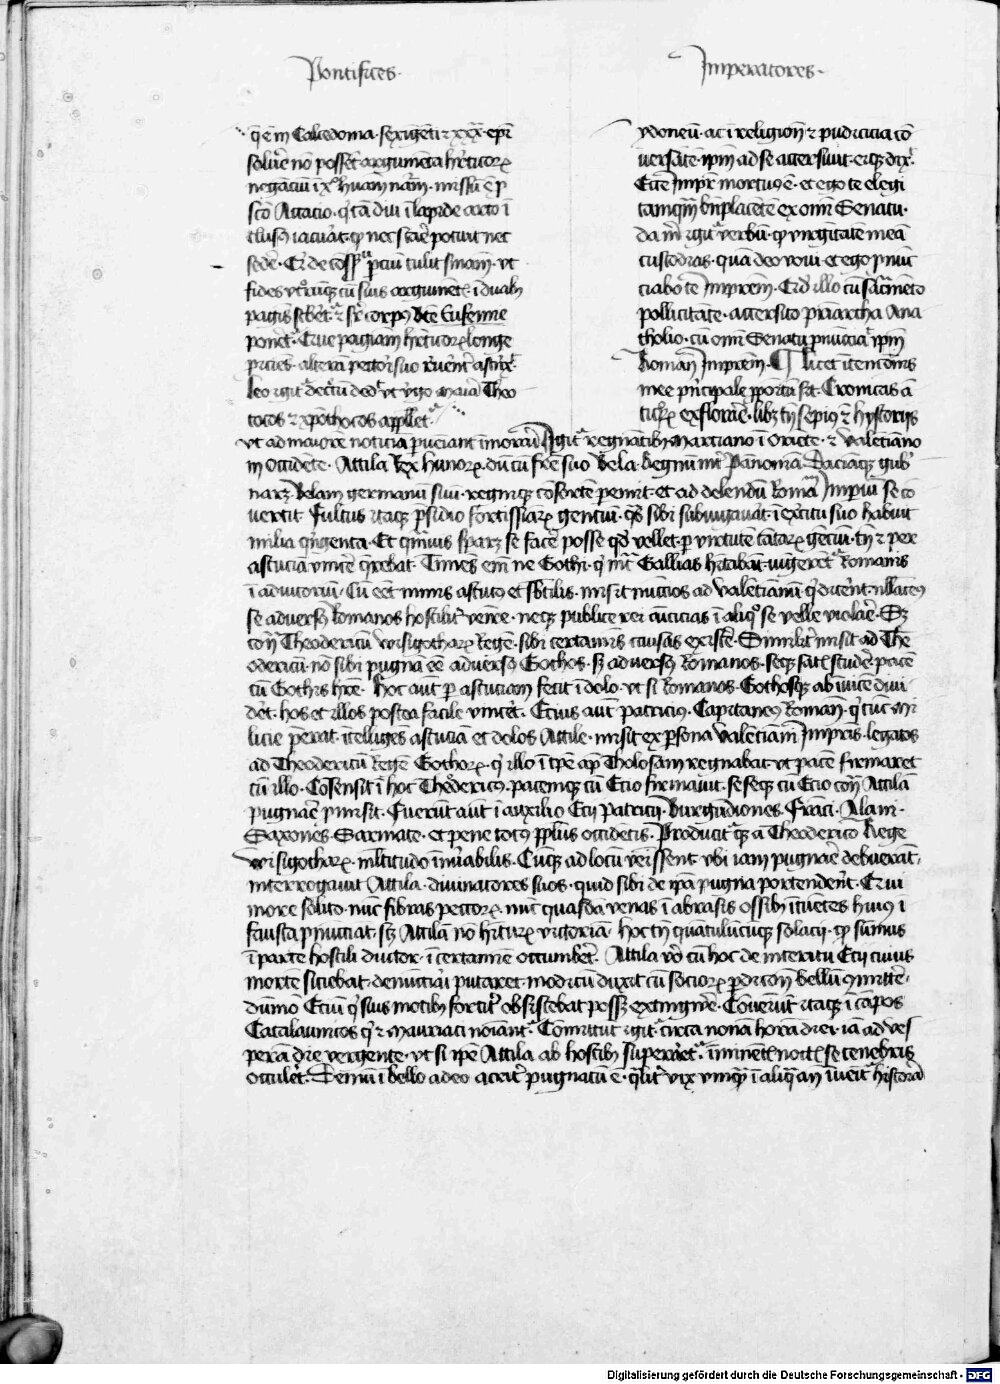 Pontifices
q̄ē in Calcedonia · sexigēti ⁊ xxx · ep̄i
soluē nō possēt argumēta h̄eticoꝝ
negātiū ī xpo hūanā nām · missū ē p
sc̄o Attatio · q' tā diu ī lapide arto ī
clusꝰ iacuat · ꝙ nec stāe potuit nec
sedē ·
fides vtriusqꝫ cū suis argumētꝭ ī duabꝫ
pagīs scbet̄ ⁊ sr̄ corpꝰ bt̄e Eufemie
ponet̄ · Que paginā h̄eticoꝝ longe
piciēs · alterā pectori suo
Leo igit̄ decͭū ded vt v̄go maria Theo
totos ⁊ xp̄othocos appllet̄
Imperatores
ydoneū · ac ī religiōn ⁊ pudicicia cō
versātē ip̄m ad se accersiuit eiqꝫ dix̄ ·
Ecce Impr̄ mortuꝰ ē · et ego te elegi
tamqm̄ bn̄placētē ex om̄i Senatu ·
da m̄ igit̄ verbū · ꝙ v̓gītate meā
custodias · quā deo voui · et ego p̄nūc
ciabo te Impr̄em · Qd̓ illo cū sac̄mēto
pollicitāte · accersito pr̄iarcha Ana
tholio · cū om̄i Senatu pnūciat̄ ip̄m
Romanꝝ Impr̄em · ¶ Licet itēcōnis
mee pn̄cipale pporitū sit · Cronicas ā
tiqͦꝝ exflorāe · libꝫ tn̄ sepiꝰ ⁊ hystoriis
vt ad maiorē noticiā pueiant īmorari Igit̄ regnātibꝫ Martiano ī Oriēte · ⁊ Valētiāno
in Occidēte · Attila Rex Hunoꝝ · dū cū fr̄e suo Bela · Regnū int̄ Pānoniā Daciāqꝫ gub̓
narꝫ Belam germanū suū · regniqꝫ cōsortē pemit · et ad delendū Romā Imperiū se cō
vertit · Fultus itaqꝫ p̄sidio fortissiaꝝ gentiū · q̄s sibi subiugauāt · ī exītu suo habuit
milia qn̄genta · Et qm̄ius sparꝫ se facē posse qd̓ vellet · p virtutē tātaꝝ gētiū · tn̄ ⁊ per
astuciā vincē q̄rebat · Timēs em̄ ne Gothi · q' int̄ Gallias h̄itabāt · iūgerēt̄ Romanis
ī adiutoriū · Cū eēt nimis astutꝰ et sbtilis · misit nūcios ad Valētianū q' dicēnt · nllaꝭ
se aduersꝰ Romanos hostilit̄ venīe · neqꝫ publice rei amicicias ī aliqͦ se velle violāe · Sꝫ
cō Theodericū Wisigothaꝝ Regē · sibi certamīs cāusās existē · Similit̄ misit ad The
odericū · nō sibi pugnā eē aduersꝰ Gothos · sꝫ aduersꝰ Romanos · seqꝫ
cū Gothis h̄re · Hoc aut̄ p astuciam fecit ī dolo · vt si Romanos · Gothosqꝫ ab īuicē diui
deēt · hos et illos postea facile vincēt · Eciꝰ aut̄ patriciꝰ · Capitaneꝰ Romanꝝ · q' tūc mi
licie p̄erat · ītelligēs astuciā et dolos Attile · misit ex p̄sona Valētiani Impris · legatos
ad Theodericū Regē Gothoꝝ · q' illo ī tp̄e ap̄ Tholosam regnabat · vt pacē firmaret
cū illo · Cōsensit ī hoc Theodericꝰ · pacemqꝫ cū Etio firmauit · se seqꝫ cū Etio cō Attilā
pugnāe p̄misit · Fuerūt aut̄ ī auxilio Ecij Patricij · Burgūdiones · Frāci · Alani ·
Saxones · Sarmate · et pene totꝰ pplus occidētis · Producit̄qꝫ a Theoderico Rege
Wisigothaꝝ · mltitudo inūabilis · Cūqꝫ ad locū venissent · vbi iam pugnāe debuerāt ·
interrogauit Attila · diuinatores suos · quid sibi de ip̄a pugna portenderēt · Qui
more solito · nūc fibras pecoꝝ · nūc quasdā venas ī abrasis ossibꝫ ītuētes huiꝰ ī
fausta pnūciāt · sꝫ Attilā nō hiturꝝ victoriā · hoc tn̄ quātulūcūqꝫ solacij · ꝙ sūmus
ī parte hostili ductor · ī certamīe occumbēt · Attila vo cū hoc de interitu Ecij cuius
mortē siciebat · denūciāi putaret · modicū duxit cū socioꝝ pdicōn bellū cōmittē ·
dūmō Eciū q' suis motibꝫ fortit̄ obsistebat possꝫ extinguē · Cōuenūt itaqꝫ ī cāpos
Catalaunicos q' ⁊ Mauriaci noīant̄ · Cōmittit̄ igit̄ circa nonā horā diei · iā ad ves
perā die vergente · vt si ip̄e Attila ab hostibꝫ superet̄ · īminētꝭ noctꝭ se tenebris
occulēt · Demū ī bello adeo acrit̄ pugnatū ē · qlit̄ vix vnqꝫ ī aliqͣ an̄ īuenit̄ historia
Digitalisierung gefördert durch die Deutsche Forschungsgemeinschaft - DFG